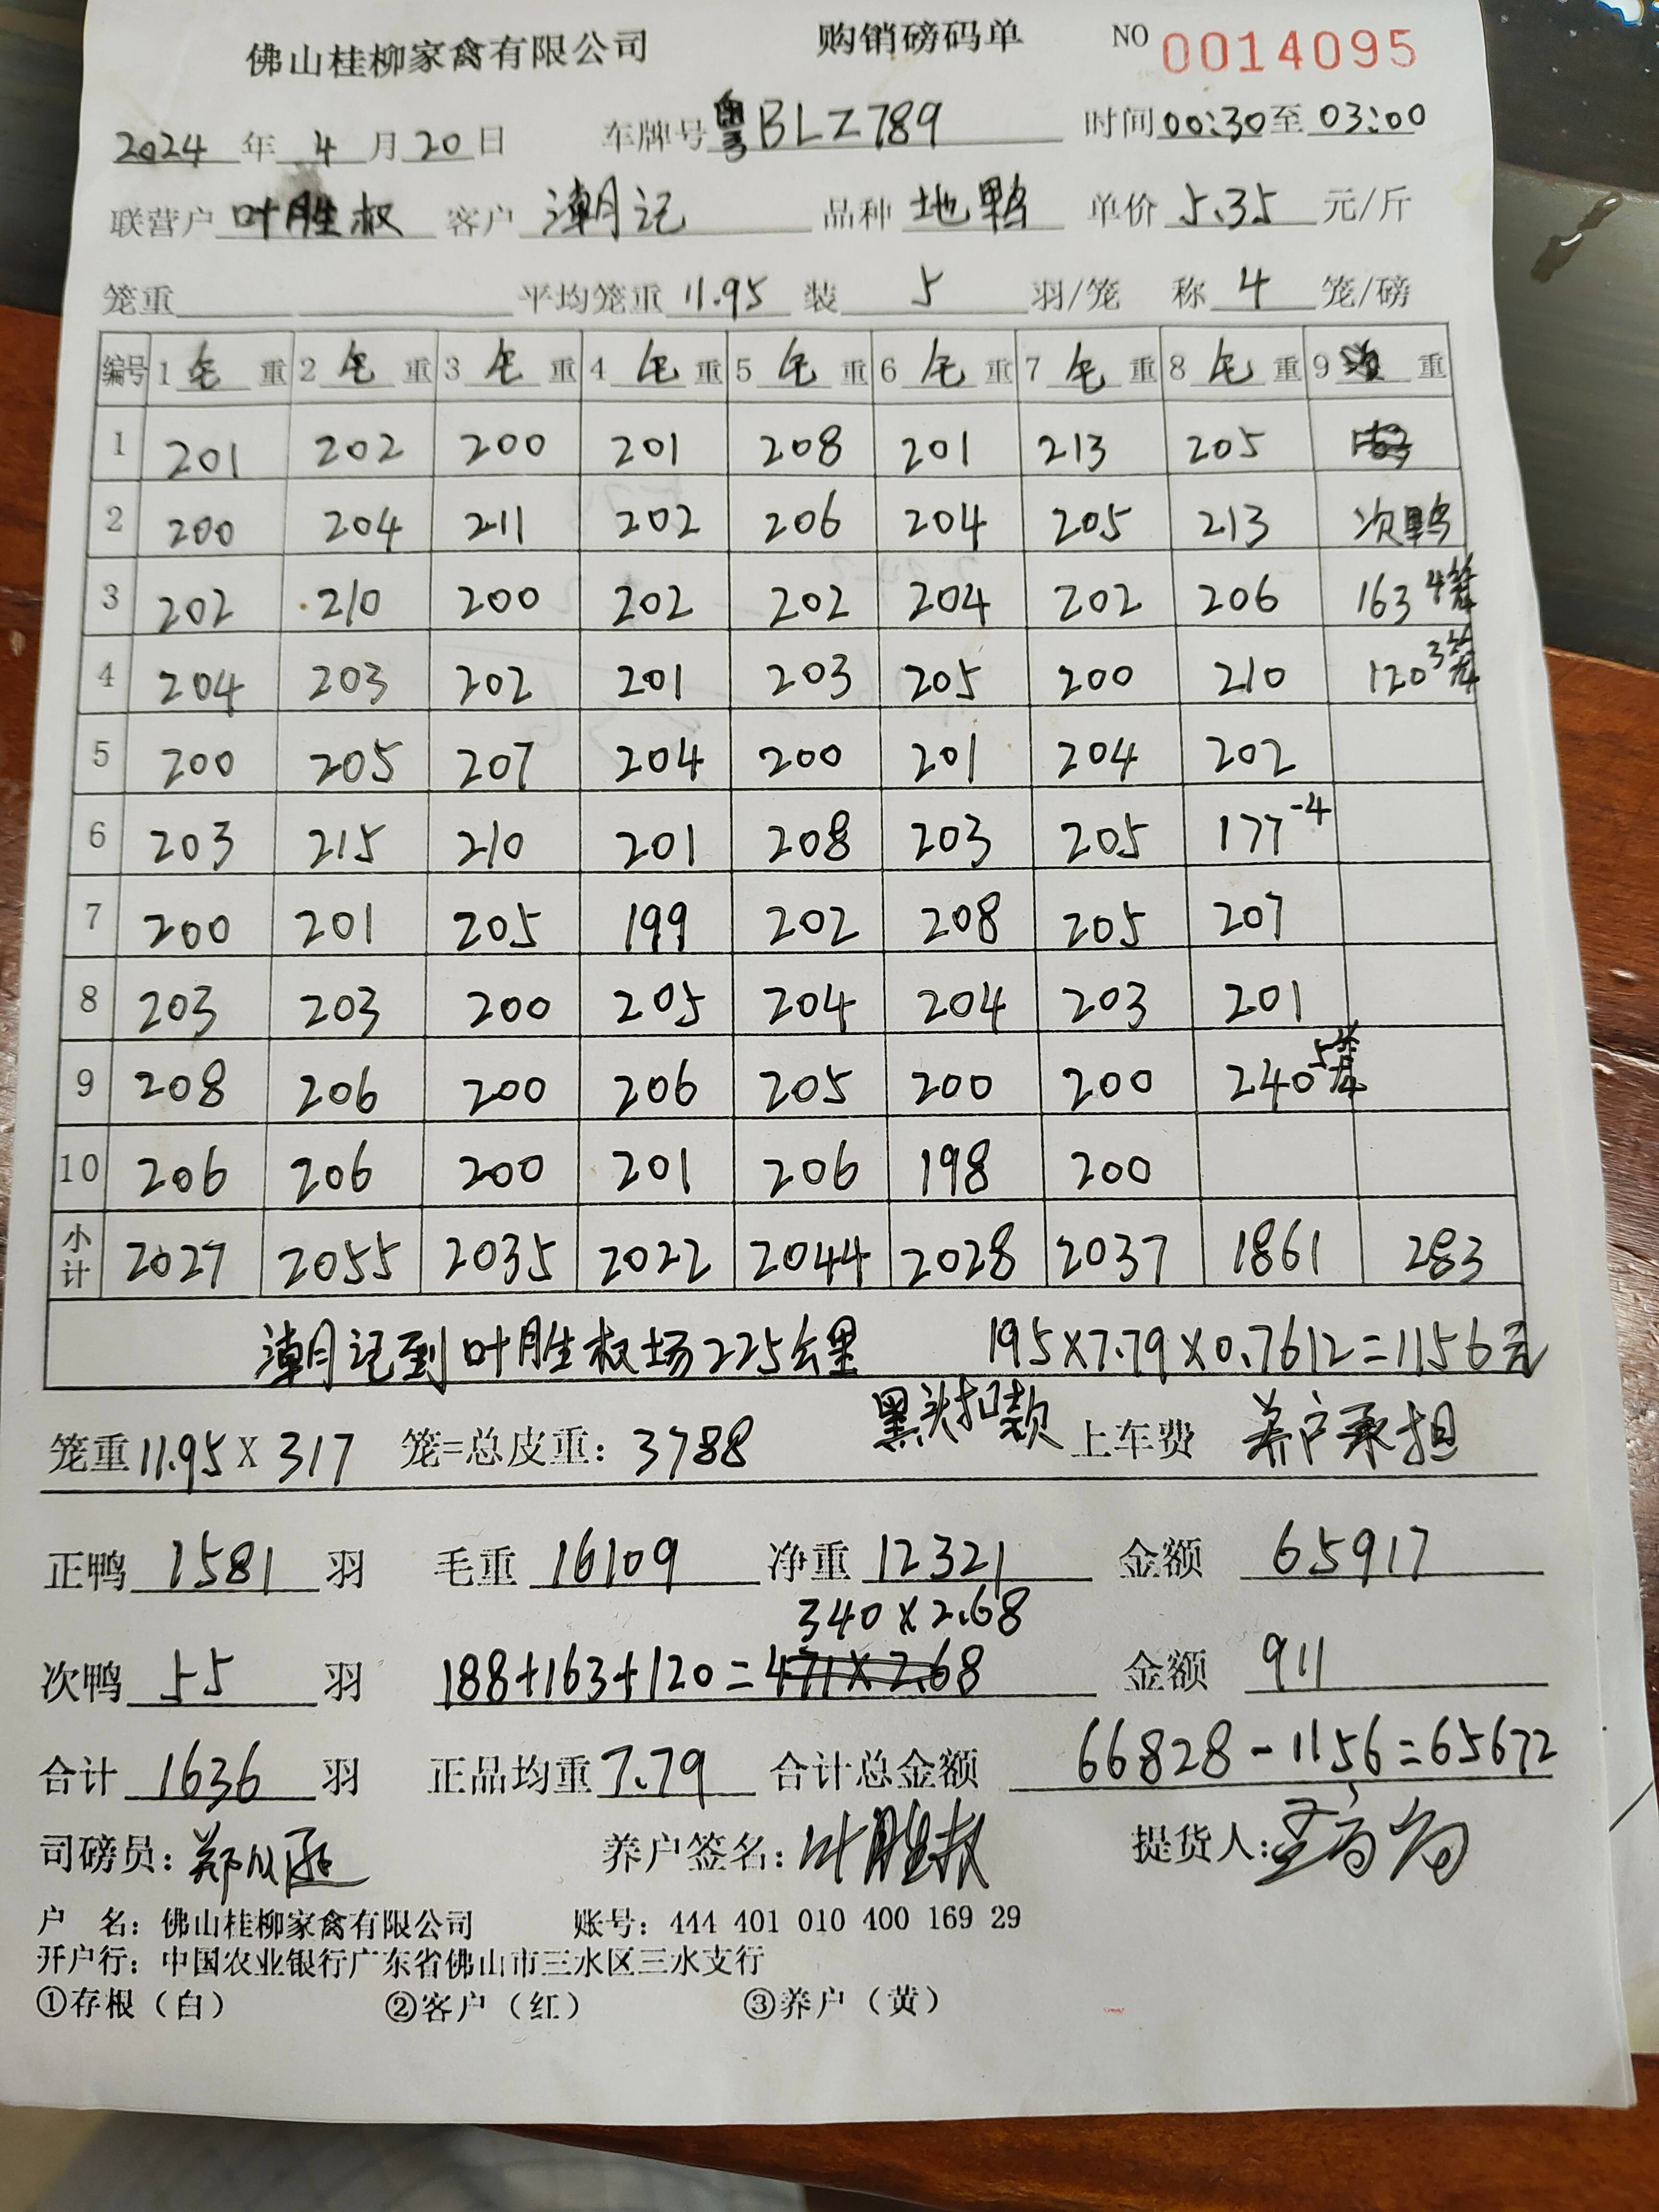 佛山桂柳家禽有限公司 购销磅码单 NO 0014095
2024 年 4 月 20 日 车牌号 粤BLZ789 时间 00:30 至 03:00
联营户 叶胜权 客户 潮记 品种 地鸭 单价 5.35 元/斤
笼重 平均笼重 11.95 装 5 羽/笼 称 4 笼/磅
编号 1 毛 重 2 毛 重 3 毛 重 4 毛 重 5 毛 重 6 毛 重 7 毛 重 8 毛 重 9 重
1 201 202 200 201 208 201 213 205
2 200 204 211 202 206 204 205 213 次鸭
3 202 210 200 202 202 204 202 206 163 4笼
4 204 203 202 201 203 205 200 210 120 3笼
5 200 205 207 204 200 201 204 202
6 203 215 210 201 208 203 205 177 -4
7 200 201 205 199 202 208 205 207
8 203 203 200 205 204 204 203 201
9 208 206 200 206 205 200 200 240 5笼
10 206 206 200 201 206 198 200
小计 2027 2055 2035 2022 2044 2028 2037 1861 283
潮记到叶胜权场225公里 195×7.79×0.7612=1156元
笼重 11.95 X 317 笼=总皮重: 3788 黑头扣款 上车费 养户承担
正鸭 1581 羽 毛重 16109 净重 12321 金额 65917
340×2.68
次鸭 55 羽 188+163+120=471×2.68 金额 911
合计 1636 羽 正品均重 7.79 合计总金额 66828-1156=65672
司磅员: 养户签名: 叶胜权 提货人:
户 名: 佛山桂柳家禽有限公司 账号: 444 401 010 400 169 29
开户行: 中国农业银行广东省佛山市三水区三水支行
①存根（白） ②客户（红） ③养户（黄）